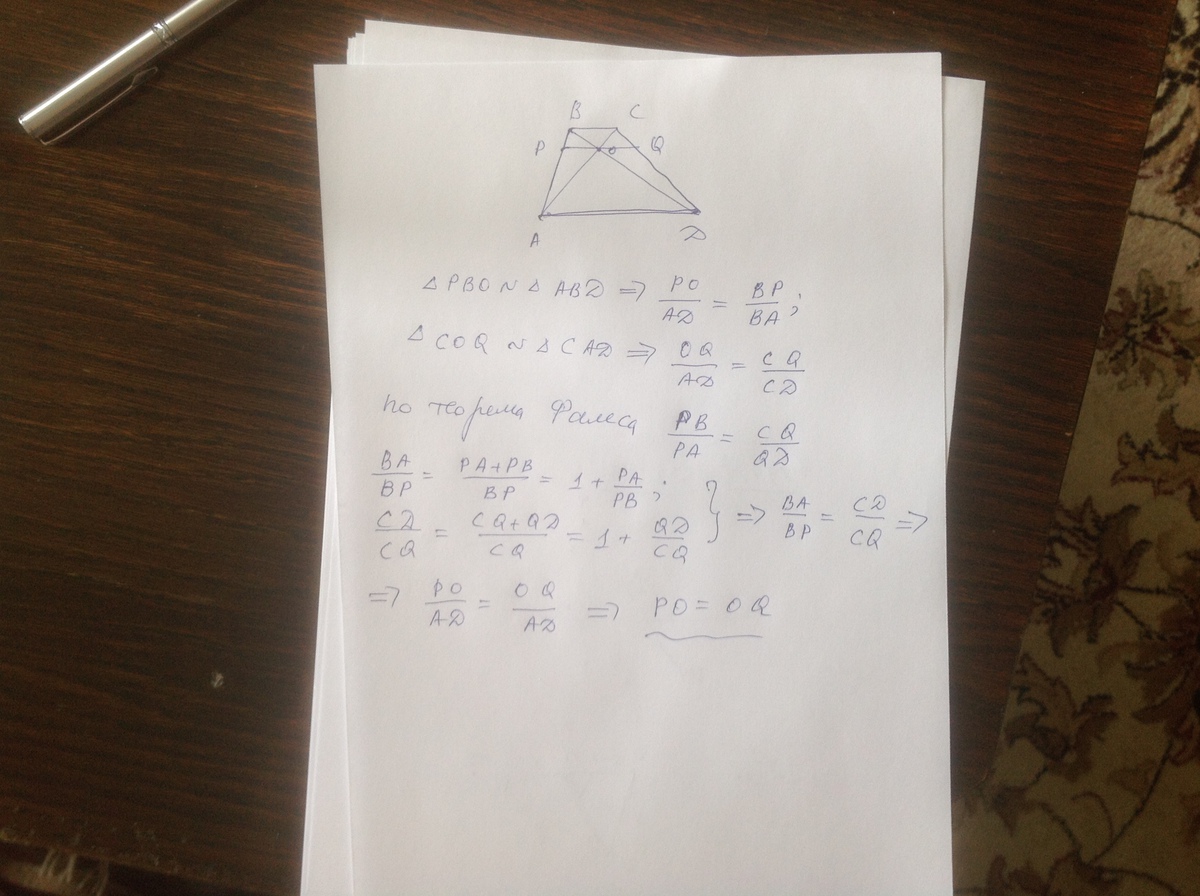 B C
P O Q
A D
△ PBO ~ △ ABD ⇒ PO/AD = BP/BA;
△ COQ ~ △ CAD ⇒ OQ/AD = CQ/CD
по теорема Фалеса PB/PA = CQ/QD
BA/BP = PA+PB/BP = 1 + PA/PB;
CD/CQ = CQ+QD/CQ = 1 + QD/CQ } ⇒ BA/BP = CD/CQ ⇒
⇒ PO/AD = OQ/AD ⇒ PO = OQ